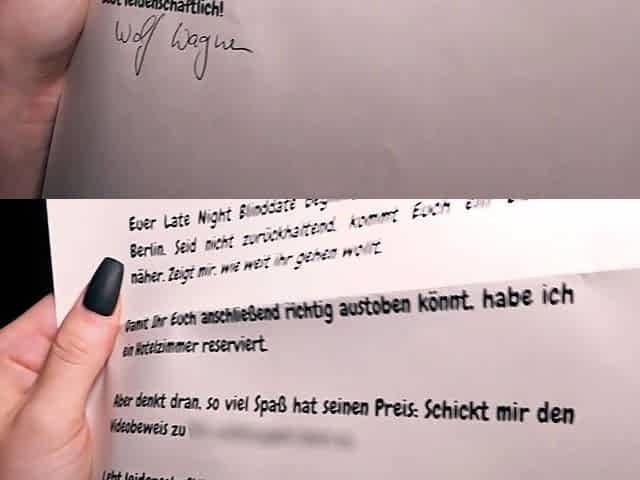 leidenschaftlich!
Wolf Wagner
Euer Late Night Blinddate
Berlin. Seid nicht zurückhaltend, kommt Euch ein
näher. Zeigt mir, wie weit ihr gehen wollt.
Damit Ihr Euch anschließend richtig austoben könnt, habe ich
ein Hotelzimmer reserviert.
Aber denkt dran, so viel Spaß hat seinen Preis: Schickt mir den
Videobeweis zu
Lebt